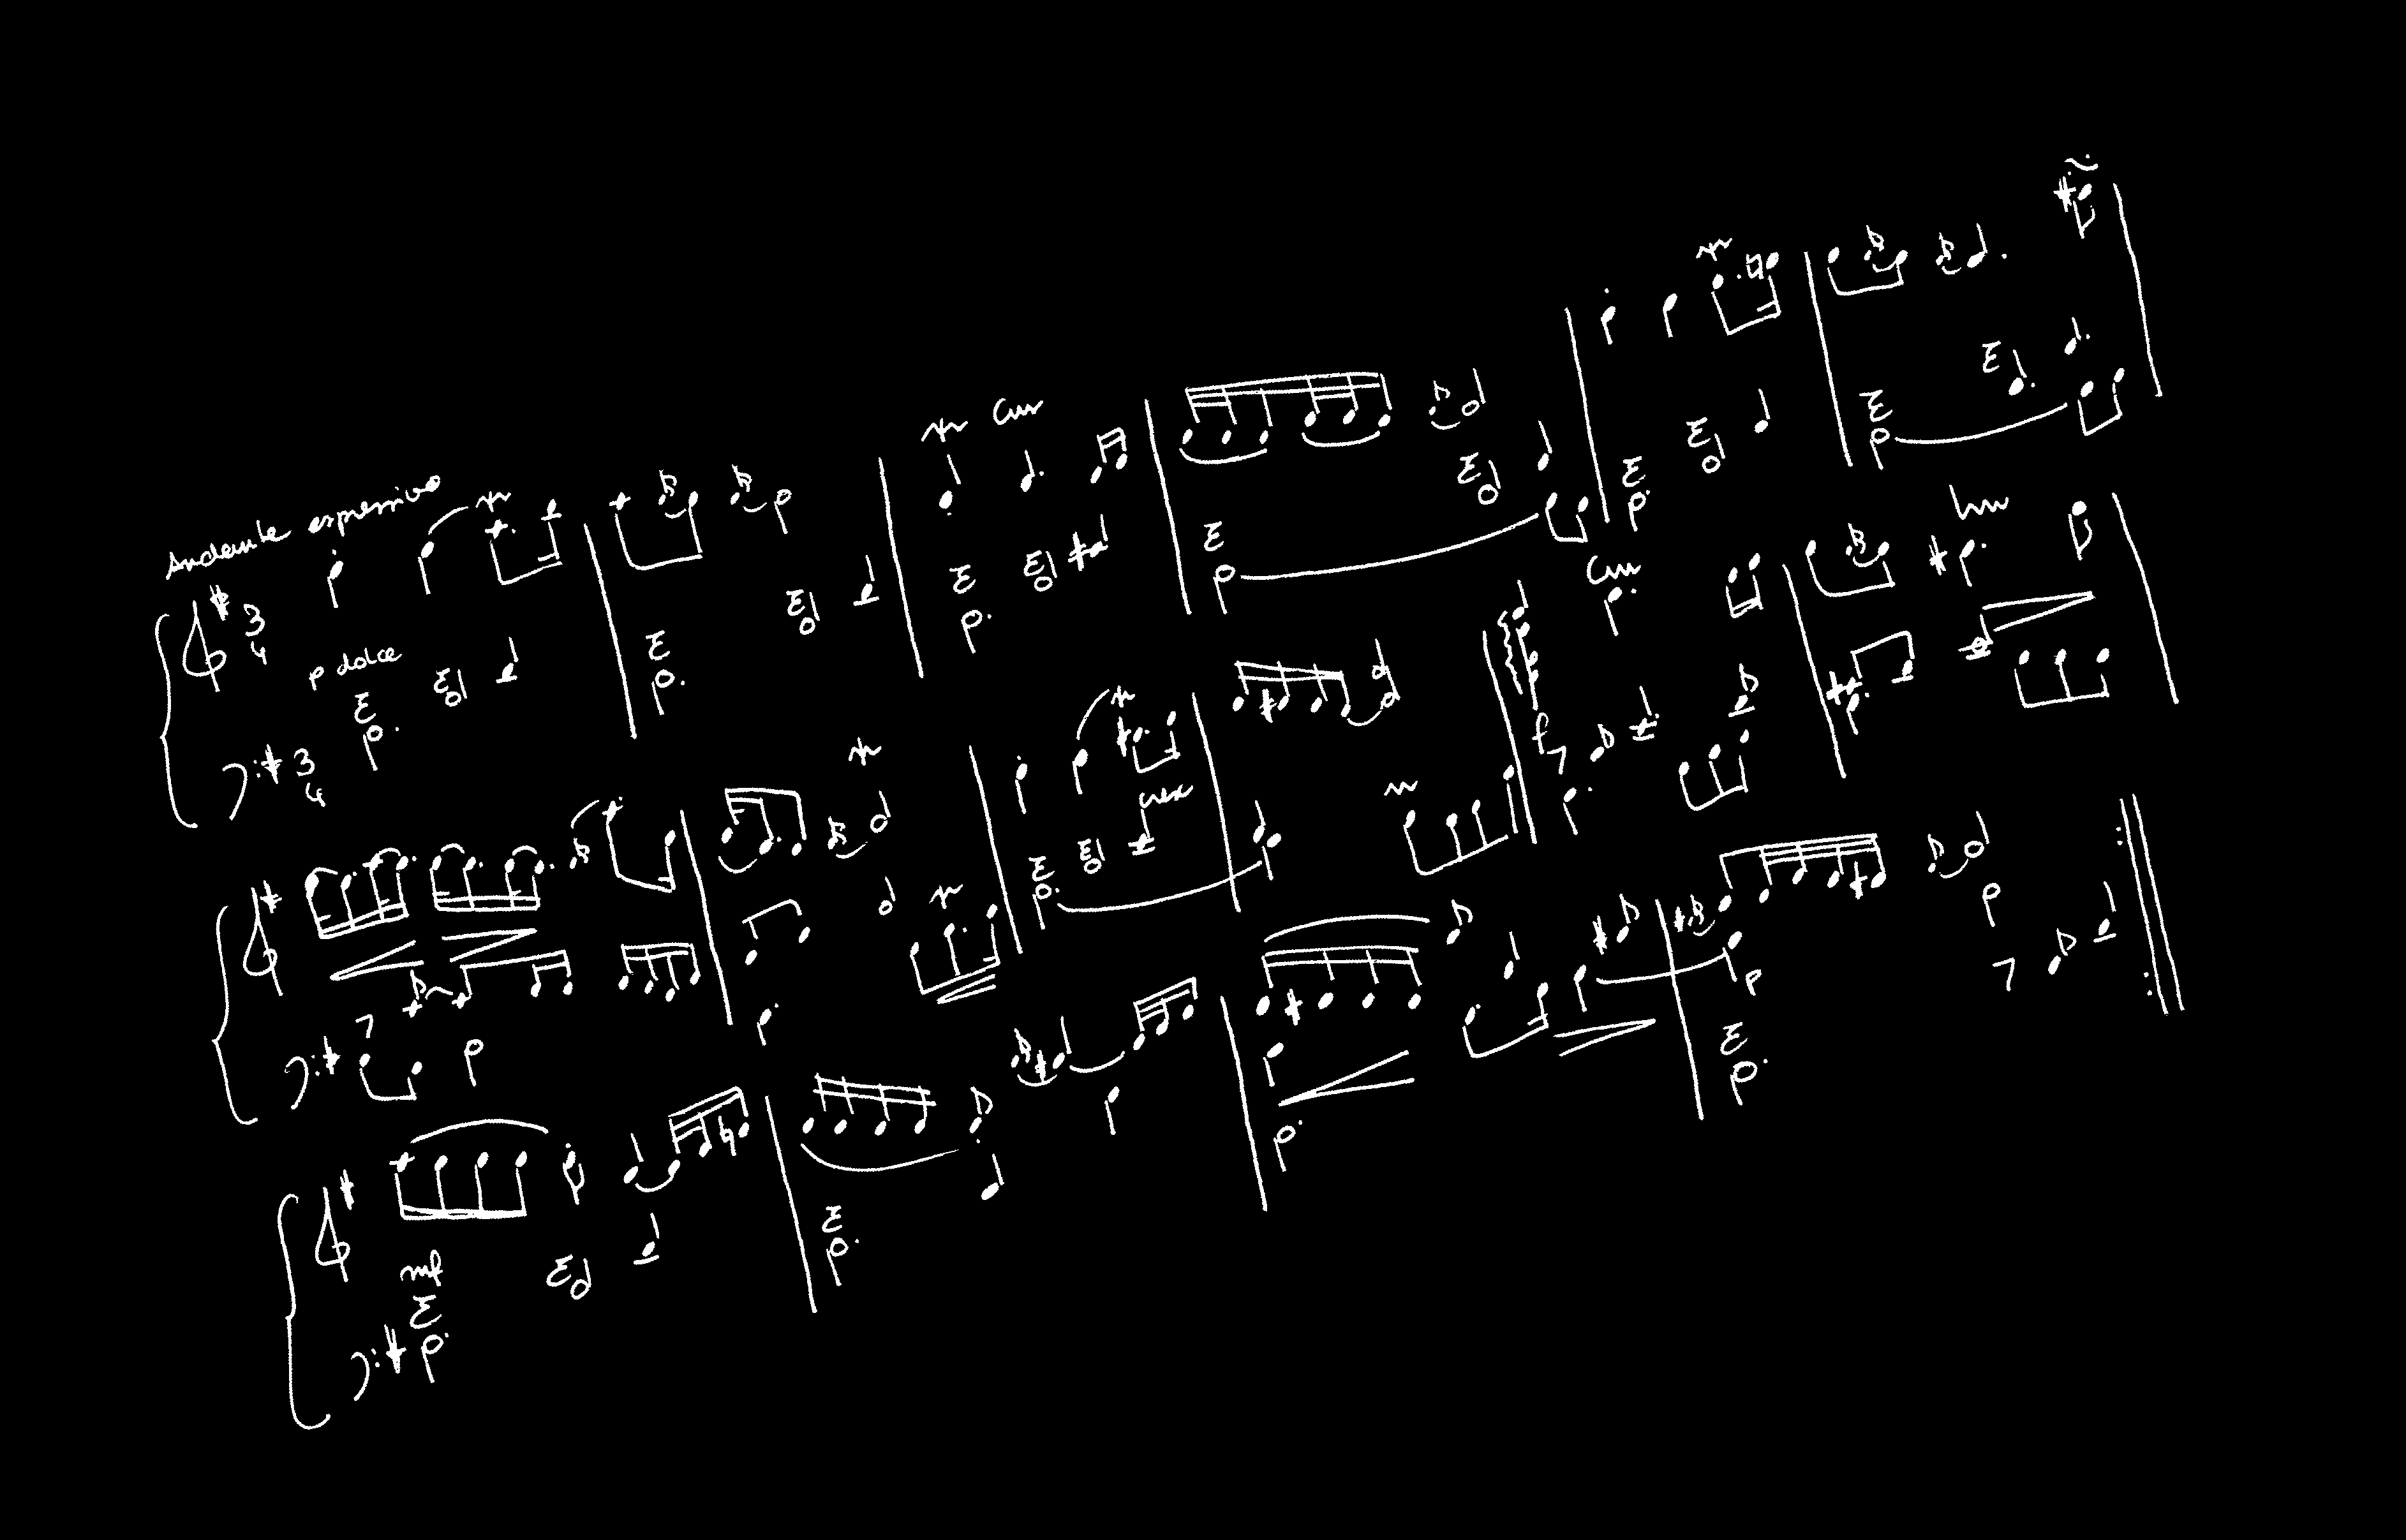 Andante espressivo
3
4
p dolce
3
4
cresc
f
mf